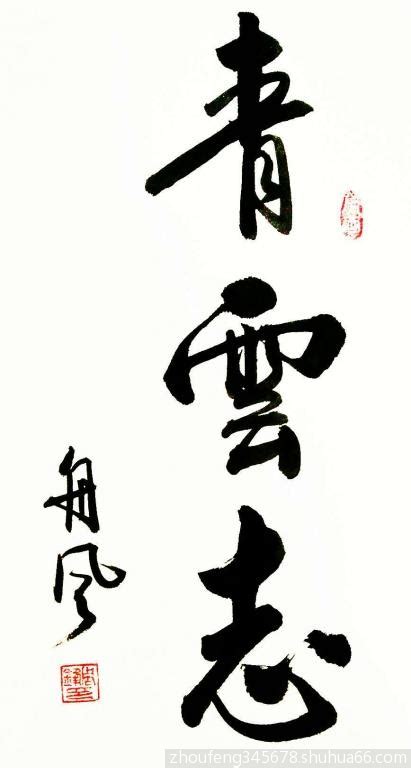 青雲志
舟风
zhoufeng345678.shuhua66.com